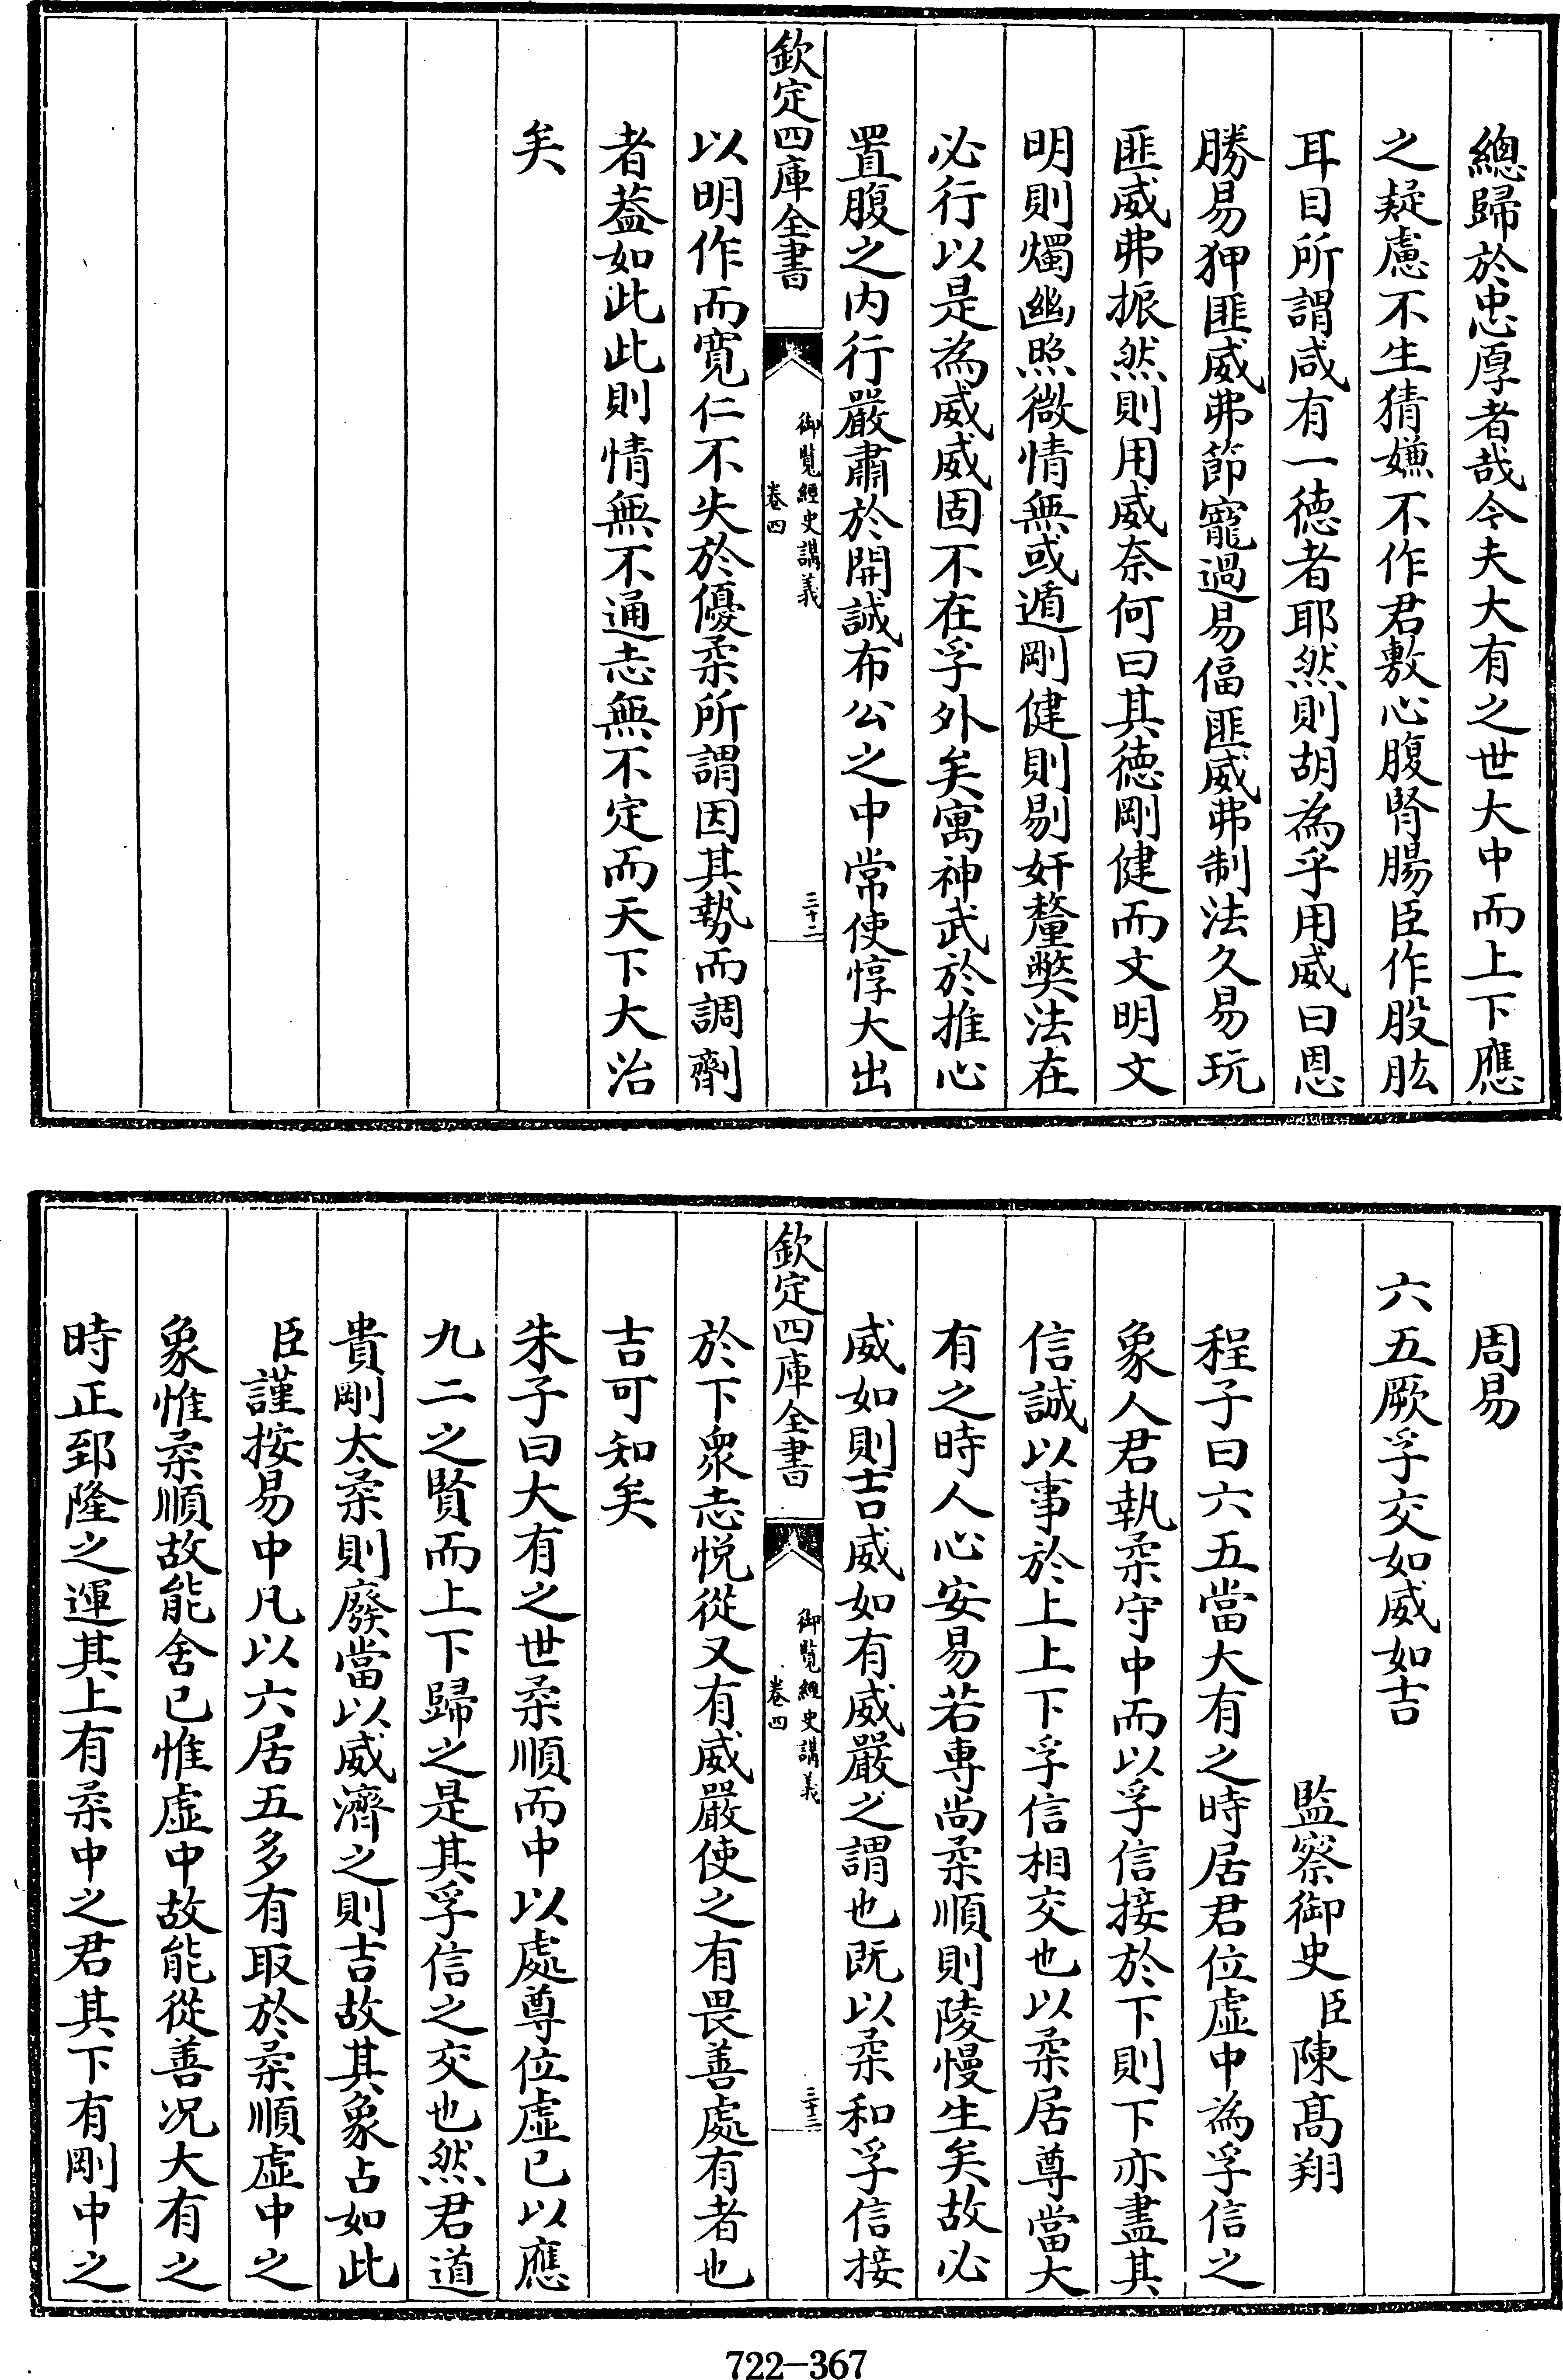 總歸於忠厚者哉今夫大有之世大中而上下應
之疑慮不生猜嫌不作君敷心腹腎腸臣作股肱
耳目所謂咸有一德者耶然則胡為乎用威曰恩
勝易狎匪威弗節寵過易偪匪威弗制法久易玩
匪威弗振然則用威奈何曰其德剛健而文明文
明則燭幽照微情無或遁剛健則剔奸釐獘法在
必行以是為威威固不在孚外矣寓神武於推心
置腹之内行嚴肅於開誠布公之中常使惇大出
欽定四庫全書
御覽經史講義
卷四
三十二
以明作而寛仁不失於優柔所謂因其勢而調劑
者葢如此此則情無不通志無不定而天下大治
矣
周易
六五厥孚交如威如吉
監察御史臣陳髙翔
程子曰六五當大有之時居君位虚中為孚信之
象人君執柔守中而以孚信接於下則下亦盡其
信誠以事於上上下孚信相交也以柔居尊當大
有之時人心安易若專尚柔順則陵慢生矣故必
威如則吉威如有威嚴之謂也既以柔和孚信接
欽定四庫全書
御覽經史講義
卷四
三十三
於下衆志悦從又有威嚴使之有畏善處有者也
吉可知矣
朱子曰大有之世柔順而中以處尊位虚已以應
九二之賢而上下歸之是其孚信之交也然君道
貴剛太柔則廢當以威濟之則吉故其象占如此
臣謹按易中凡以六居五多有取於柔順虚中之
象惟柔順故能舍已惟虚中故能從善况大有之
時正郅隆之運其上有柔中之君其下有剛中之
722-367